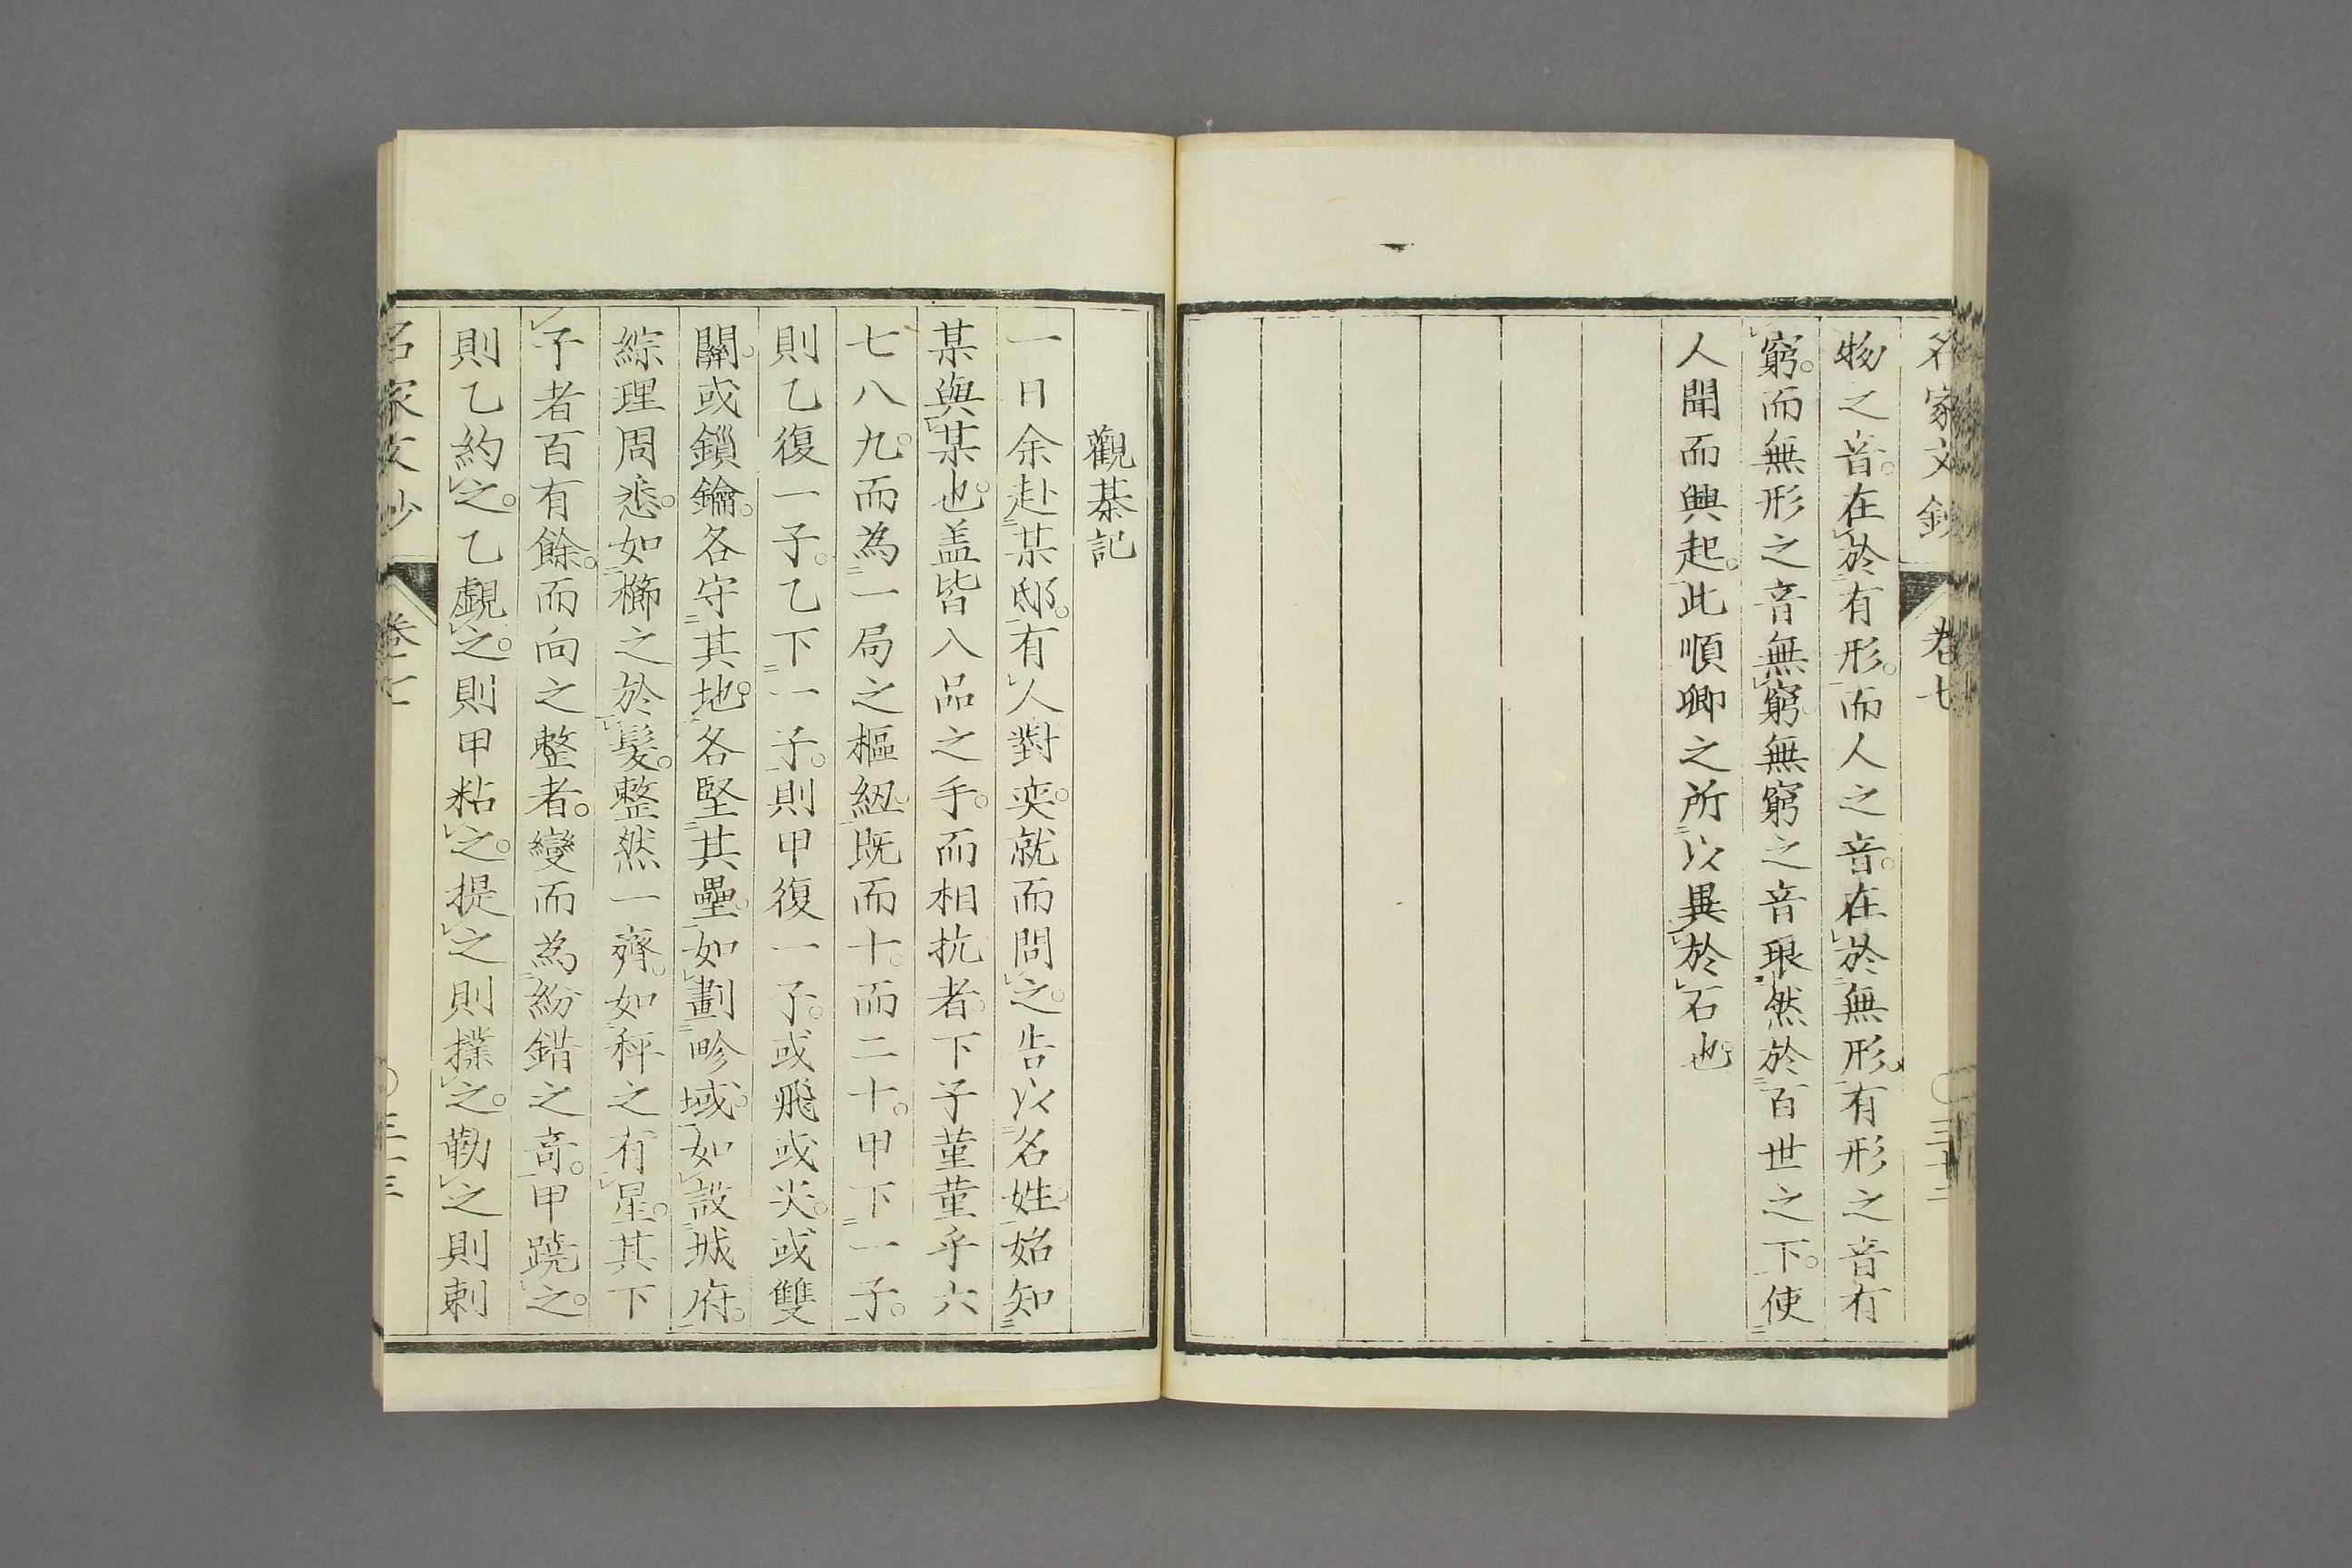 名家文鈔 卷七 〇三十二
物之音。在於有形。而人之音。在於無形。有形之音有
窮。而無形之音無窮。無窮之音琅然於百世之下。使
人聞而興起。此順卿之所以異於石也
觀棊記
一日余赴某邸。有人對奕。就而問之。告以名姓。始知
某與某也。盖皆入品之手。而相抗者。下子菫菫乎六
七八九。而為一局之樞紐。既而十。而二十。甲下一子。
則乙復一子。乙下一子。則甲復一子。或飛或尖。或雙
關。或鎖鑰。各守其地。各堅其壘。如劃畛域。如設城府。
綜理周悉。如櫛之於髮。整然一齊。如秤之有星。其下
子者百有餘。而向之整者。變而為紛錯之奇。甲蹺之。
則乙約之。乙覷之。則甲粘之。提之則撲之。勒之則刺
名家文鈔 卷七 〇三十三